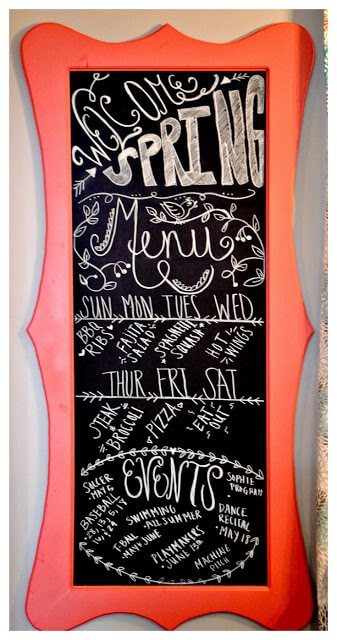 WELCOME
SPRING
Menu
SUN MON TUES WED
BBQ
RIBS
FAJITA
SALAD
SPAGHETTI
SQUASH
HOT
WINGS
THUR FRI SAT
STEAK
BROCCOLI
PIZZA
"EAT
OUT"
EVENTS
SOCCER
MAY 6
BASEBALL
SWIMMING
ALL SUMMER
T-BALL
MAY & JUNE
PLAYMAKERS
JUNE
SOPHIE
PROGRAM
DANCE
RECITAL
MAY 18
MACHINE
PITCH